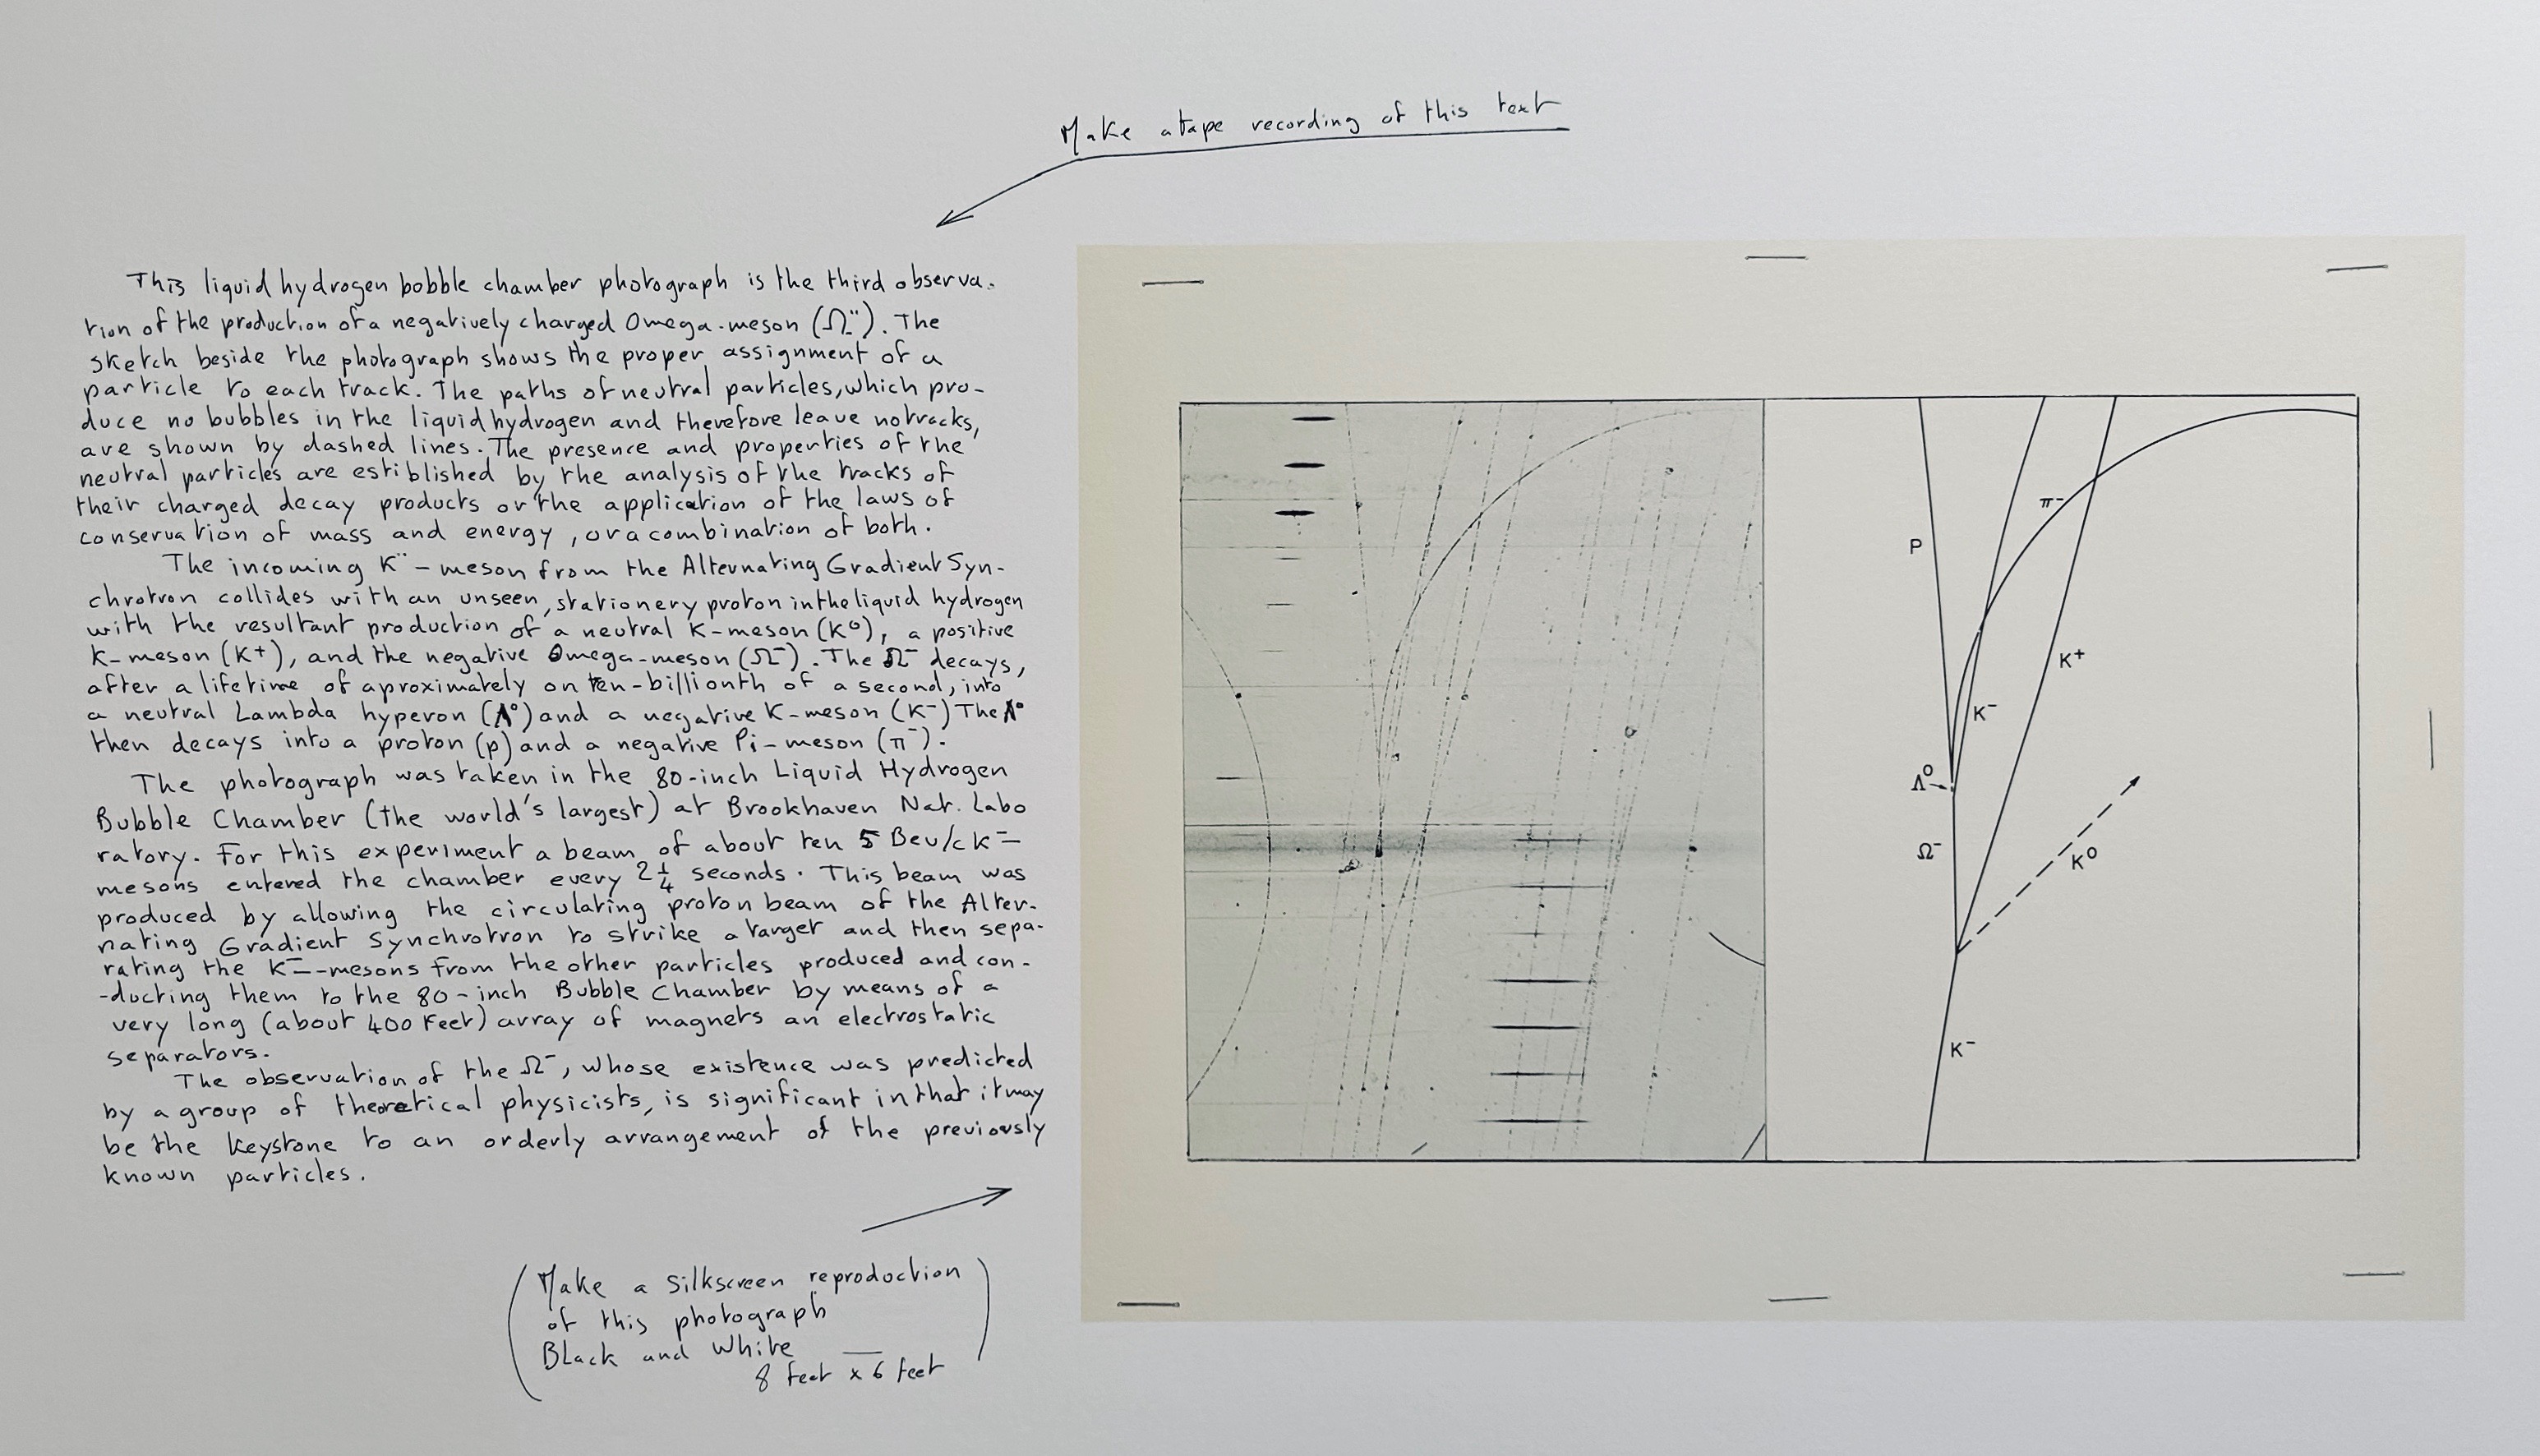 Make a tape recording of this text
This liquid hydrogen bobble chamber photograph is the third observa-
tion of the production of a negatively charged Omega-meson (Ω¨). The
sketch beside the photograph shows the proper assignment of a
particle to each track. The paths of neutral particles, which pro-
duce no bubbles in the liquid hydrogen and therefore leave no tracks,
are shown by dashed lines. The presence and properties of the
neutral particles are estiblished by the analysis of the tracks of
their charged decay products or the application of the laws of
conservation of mass and energy, or a combination of both.
The incoming K¨-meson from the Alternating Gradient Syn-
chrotron collides with an unseen, stationery proton in the liquid hydrogen
with the resultant production of a neutral K-meson (K⁰), a positive
K-meson (K+), and the negative Omega-meson (Ω⁻). The Ω⁻ decays,
after a lifetime of aproximately on ten-billionth of a second, into
a neutral Lambda hyperon (Λ⁰) and a negative K-meson (K⁻) The Λ⁰
then decays into a proton (p) and a negative Pi-meson (π⁻).
The photograph was taken in the 80-inch Liquid Hydrogen
Bubble Chamber (the world's largest) at Brookhaven Nat. Labo
ratory. For this experiment a beam of about ten 5 Bev/c K⁻-
mesons entered the chamber every 2 1/4 seconds. This beam was
produced by allowing the circulating proton beam of the Alter-
nating Gradient Synchrotron to strike a target and then sepa-
rating the K⁻-mesons from the other particles produced and con-
-ducting them to the 80-inch Bubble Chamber by means of a
very long (about 400 Feet) array of magnets an electrostatic
separators.
The observation of the Ω⁻, whose existence was predicted
by a group of theoretical physicists, is significant in that it may
be the keystone to an orderly arrangement of the previously
known particles.
(Make a Silkscreen reproduction
of this photograph
Black and White
8 feet x 6 feet)
π⁻
P
K⁺
K⁻
Λ⁰
Ω⁻
K⁰
K⁻